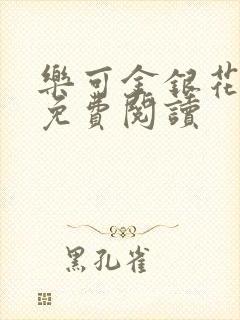 樂可金銀花
免費閱讀
黑孔雀